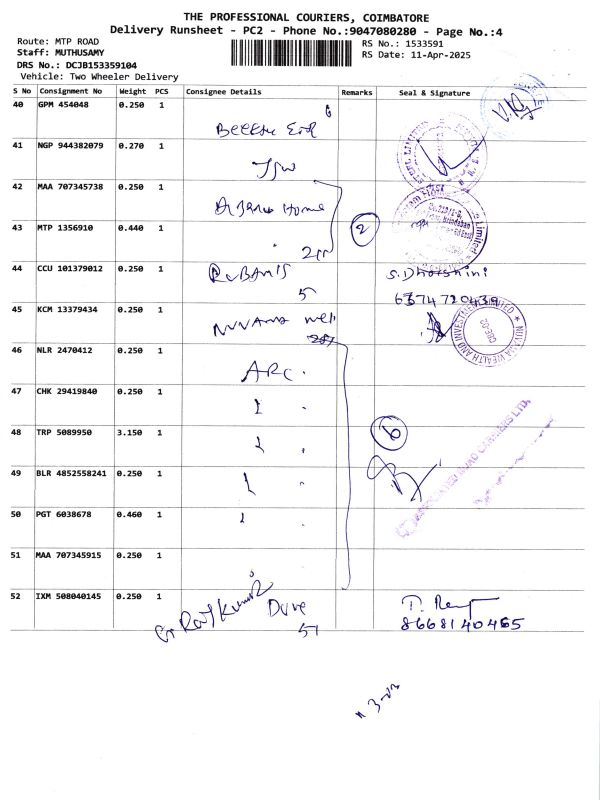 THE PROFESSIONAL COURIERS, COIMBATORE
Delivery Runsheet - PC2 - Phone No.:9047080280 - Page No.:4
Route: MTP ROAD
Staff: MUTHUSAMY
DRS No.: DCJB153359104
Vehicle: Two Wheeler Delivery
RS No.: 1533591
RS Date: 11-Apr-2025
S No Consignment No Weight PCS Consignee Details Remarks Seal & Signature
40 GPM 454048 0.250 1
41 NGP 944382079 0.270 1
42 MAA 707345738 0.250 1 Home
43 MTP 1356910 0.440 1 2
44 CCU 101379012 0.250 1 S. Dharshini
5 6374720439
45 KCM 13379434 0.250 1
46 NLR 2470412 0.250 1
ARC.
47 CHK 29419840 0.250 1
48 TRP 5089950 3.150 1 6
49 BLR 4852558241 0.250 1
50 PGT 6038678 0.460 1
51 MAA 707345915 0.250 1
52 IXM 508040145 0.250 1
RajKumar
51 8668140465
NUVAMA WEALTH AND INVESTMENT LIMITED
CBE-02
ASSOCIATED ROAD CARRIERS LTD.